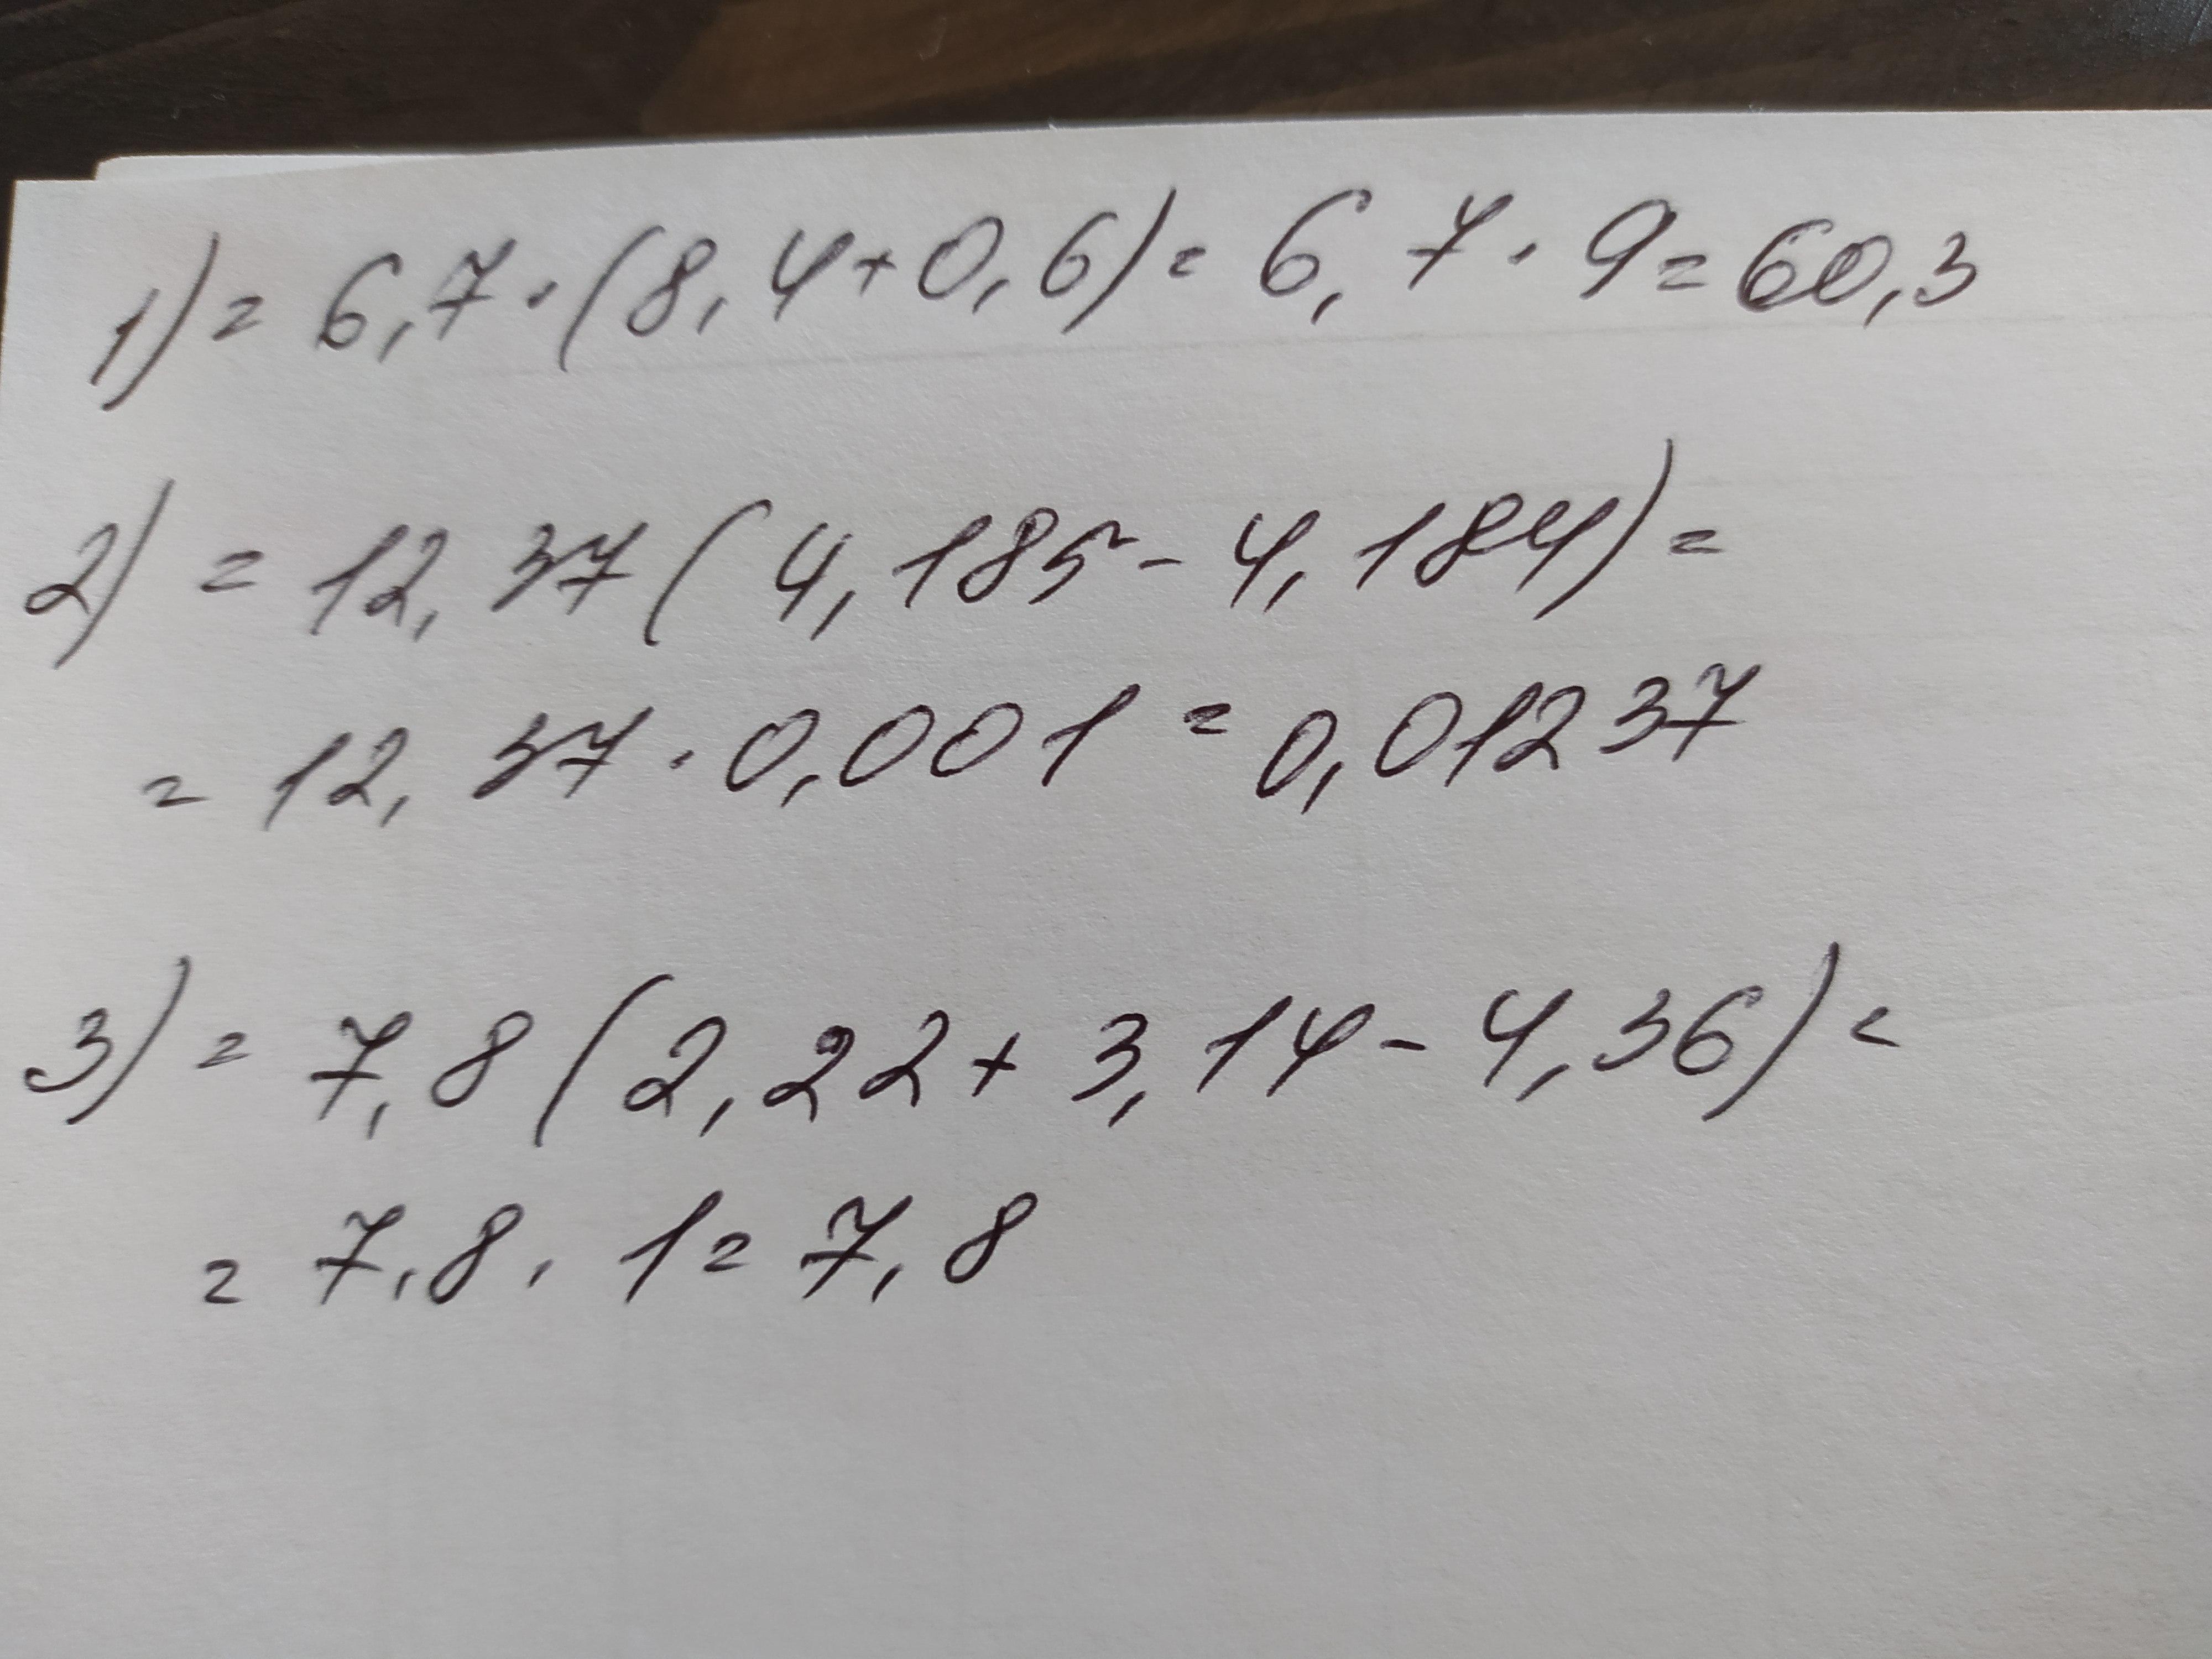 1) = 6,7 · (8,4 + 0,6) = 6,7 · 9 = 60,3
2) = 12,37 (4,185 - 4,184) =
= 12,37 · 0,001 = 0,01237
3) = 7,8 (2,22 + 3,14 - 4,36) =
= 7,8 · 1 = 7,8